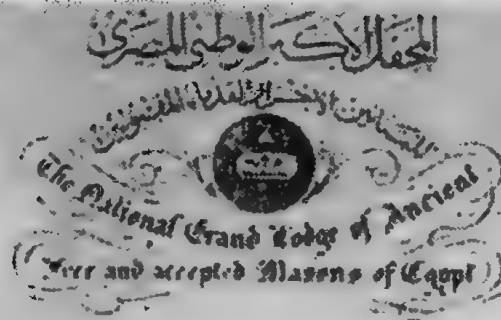 المحفل الأكبر الوطني المصري
The National Grand Lodge of Ancient
Free and accepted Masons of Egypt